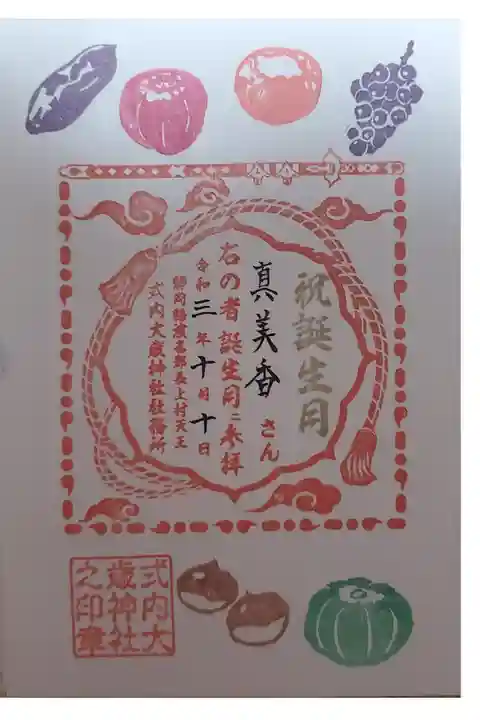 祝誕生月
真美香さん
右の者誕生月ニ参拝
令和三年十月十日
静岡縣濱名郡長上村天王
式内大歳神社社務所
式内大
歳神社
之印章